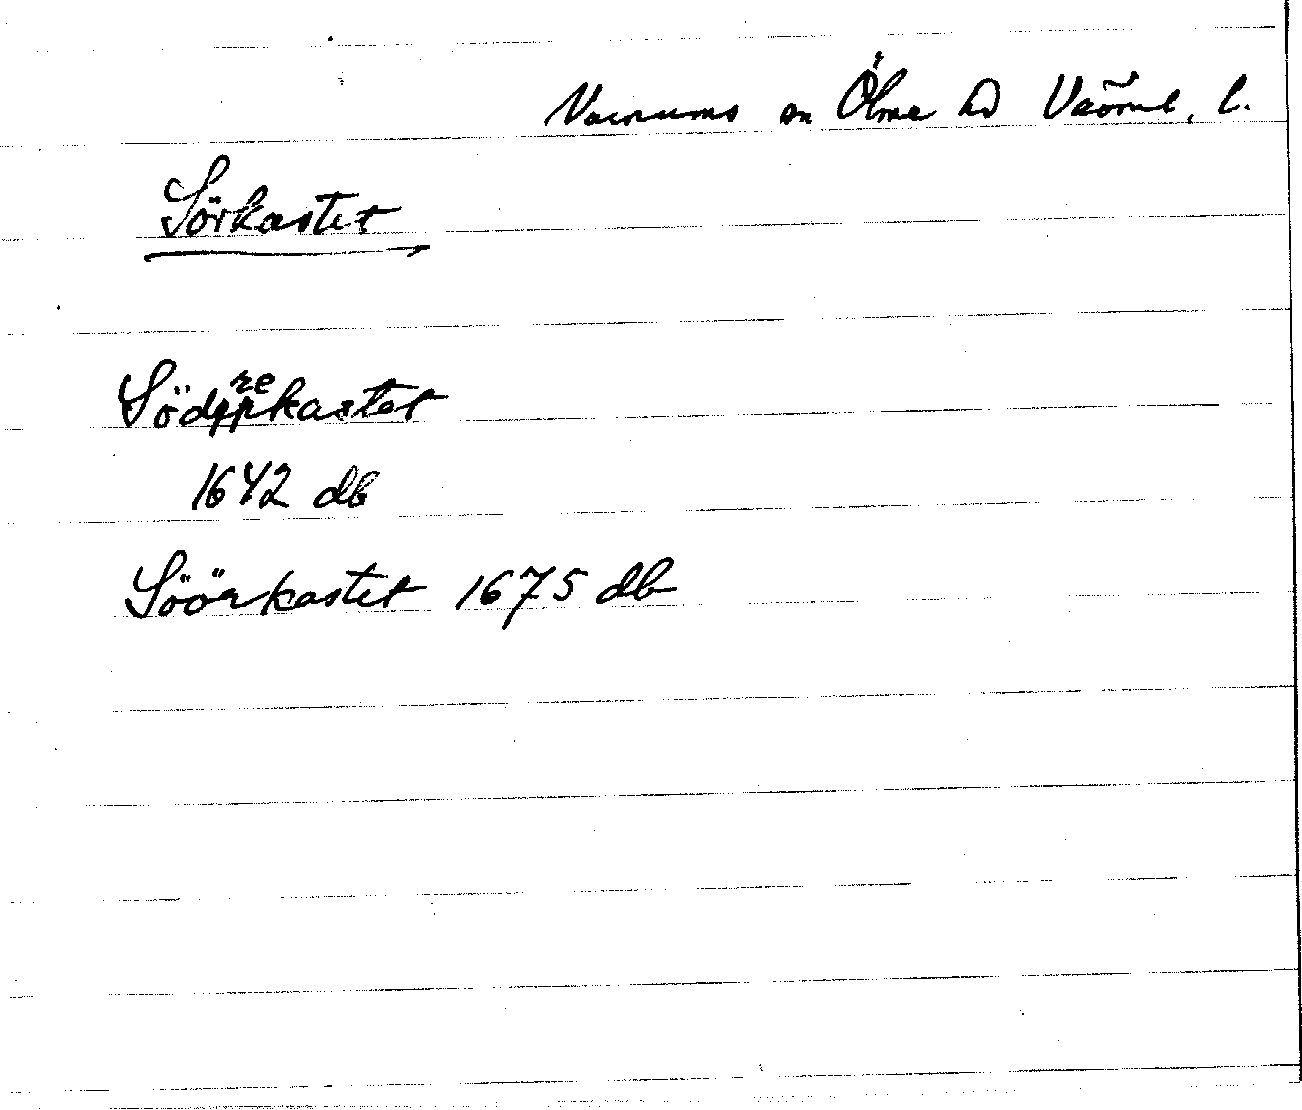 Varnums sn Ölme hd Värml. l.
Sörkastet
Södrekastet
1642 db
Söörkastet 1675 db